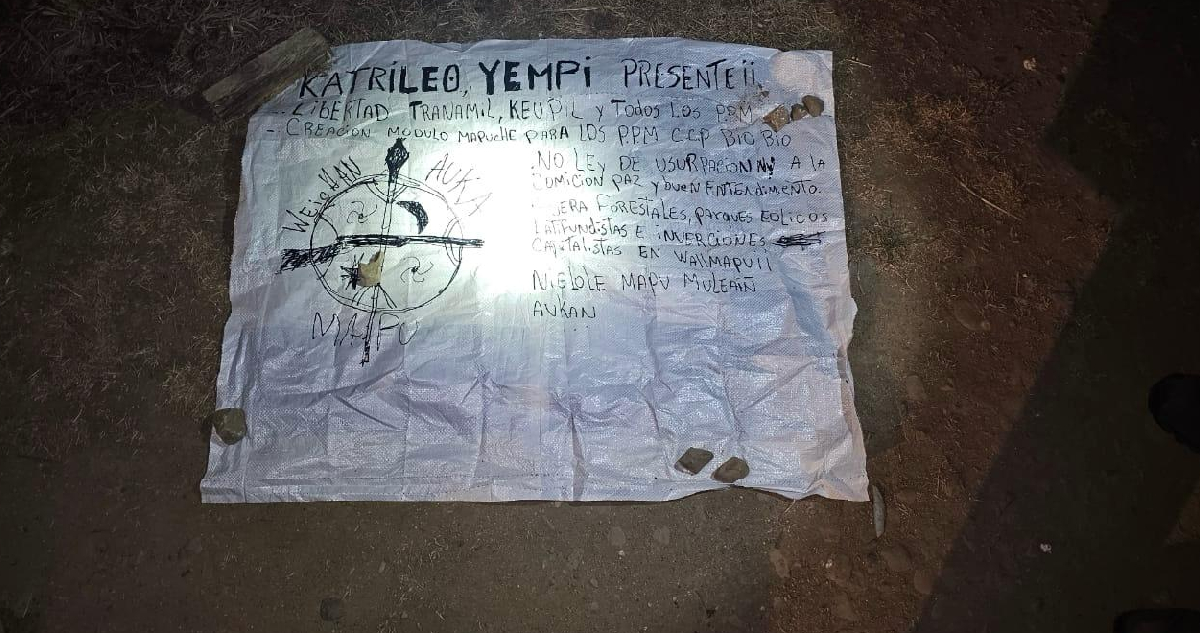 KATRILEO, YEMPI PRESENTE¡¡
- LIBERTAD TRANAMIL, KEUPIL y TODOS LOS PPM
- CREACION MODULO MAPUCHE PARA LOS P.P.M C.C.P BIO BIO
WEICHAN
AUKA
MAPU
.NO LEY DE USURPACION A LA
COMICION PAZ Y BUEN ENTENDIMENTO.
FORESTALES, PARQUES EOLICOS
LATIFUNDISTAS E INVERCIONES
CAPITALISTAS EN WALLMAPU¡¡
MAPU MULEAIÑ
AUKAN